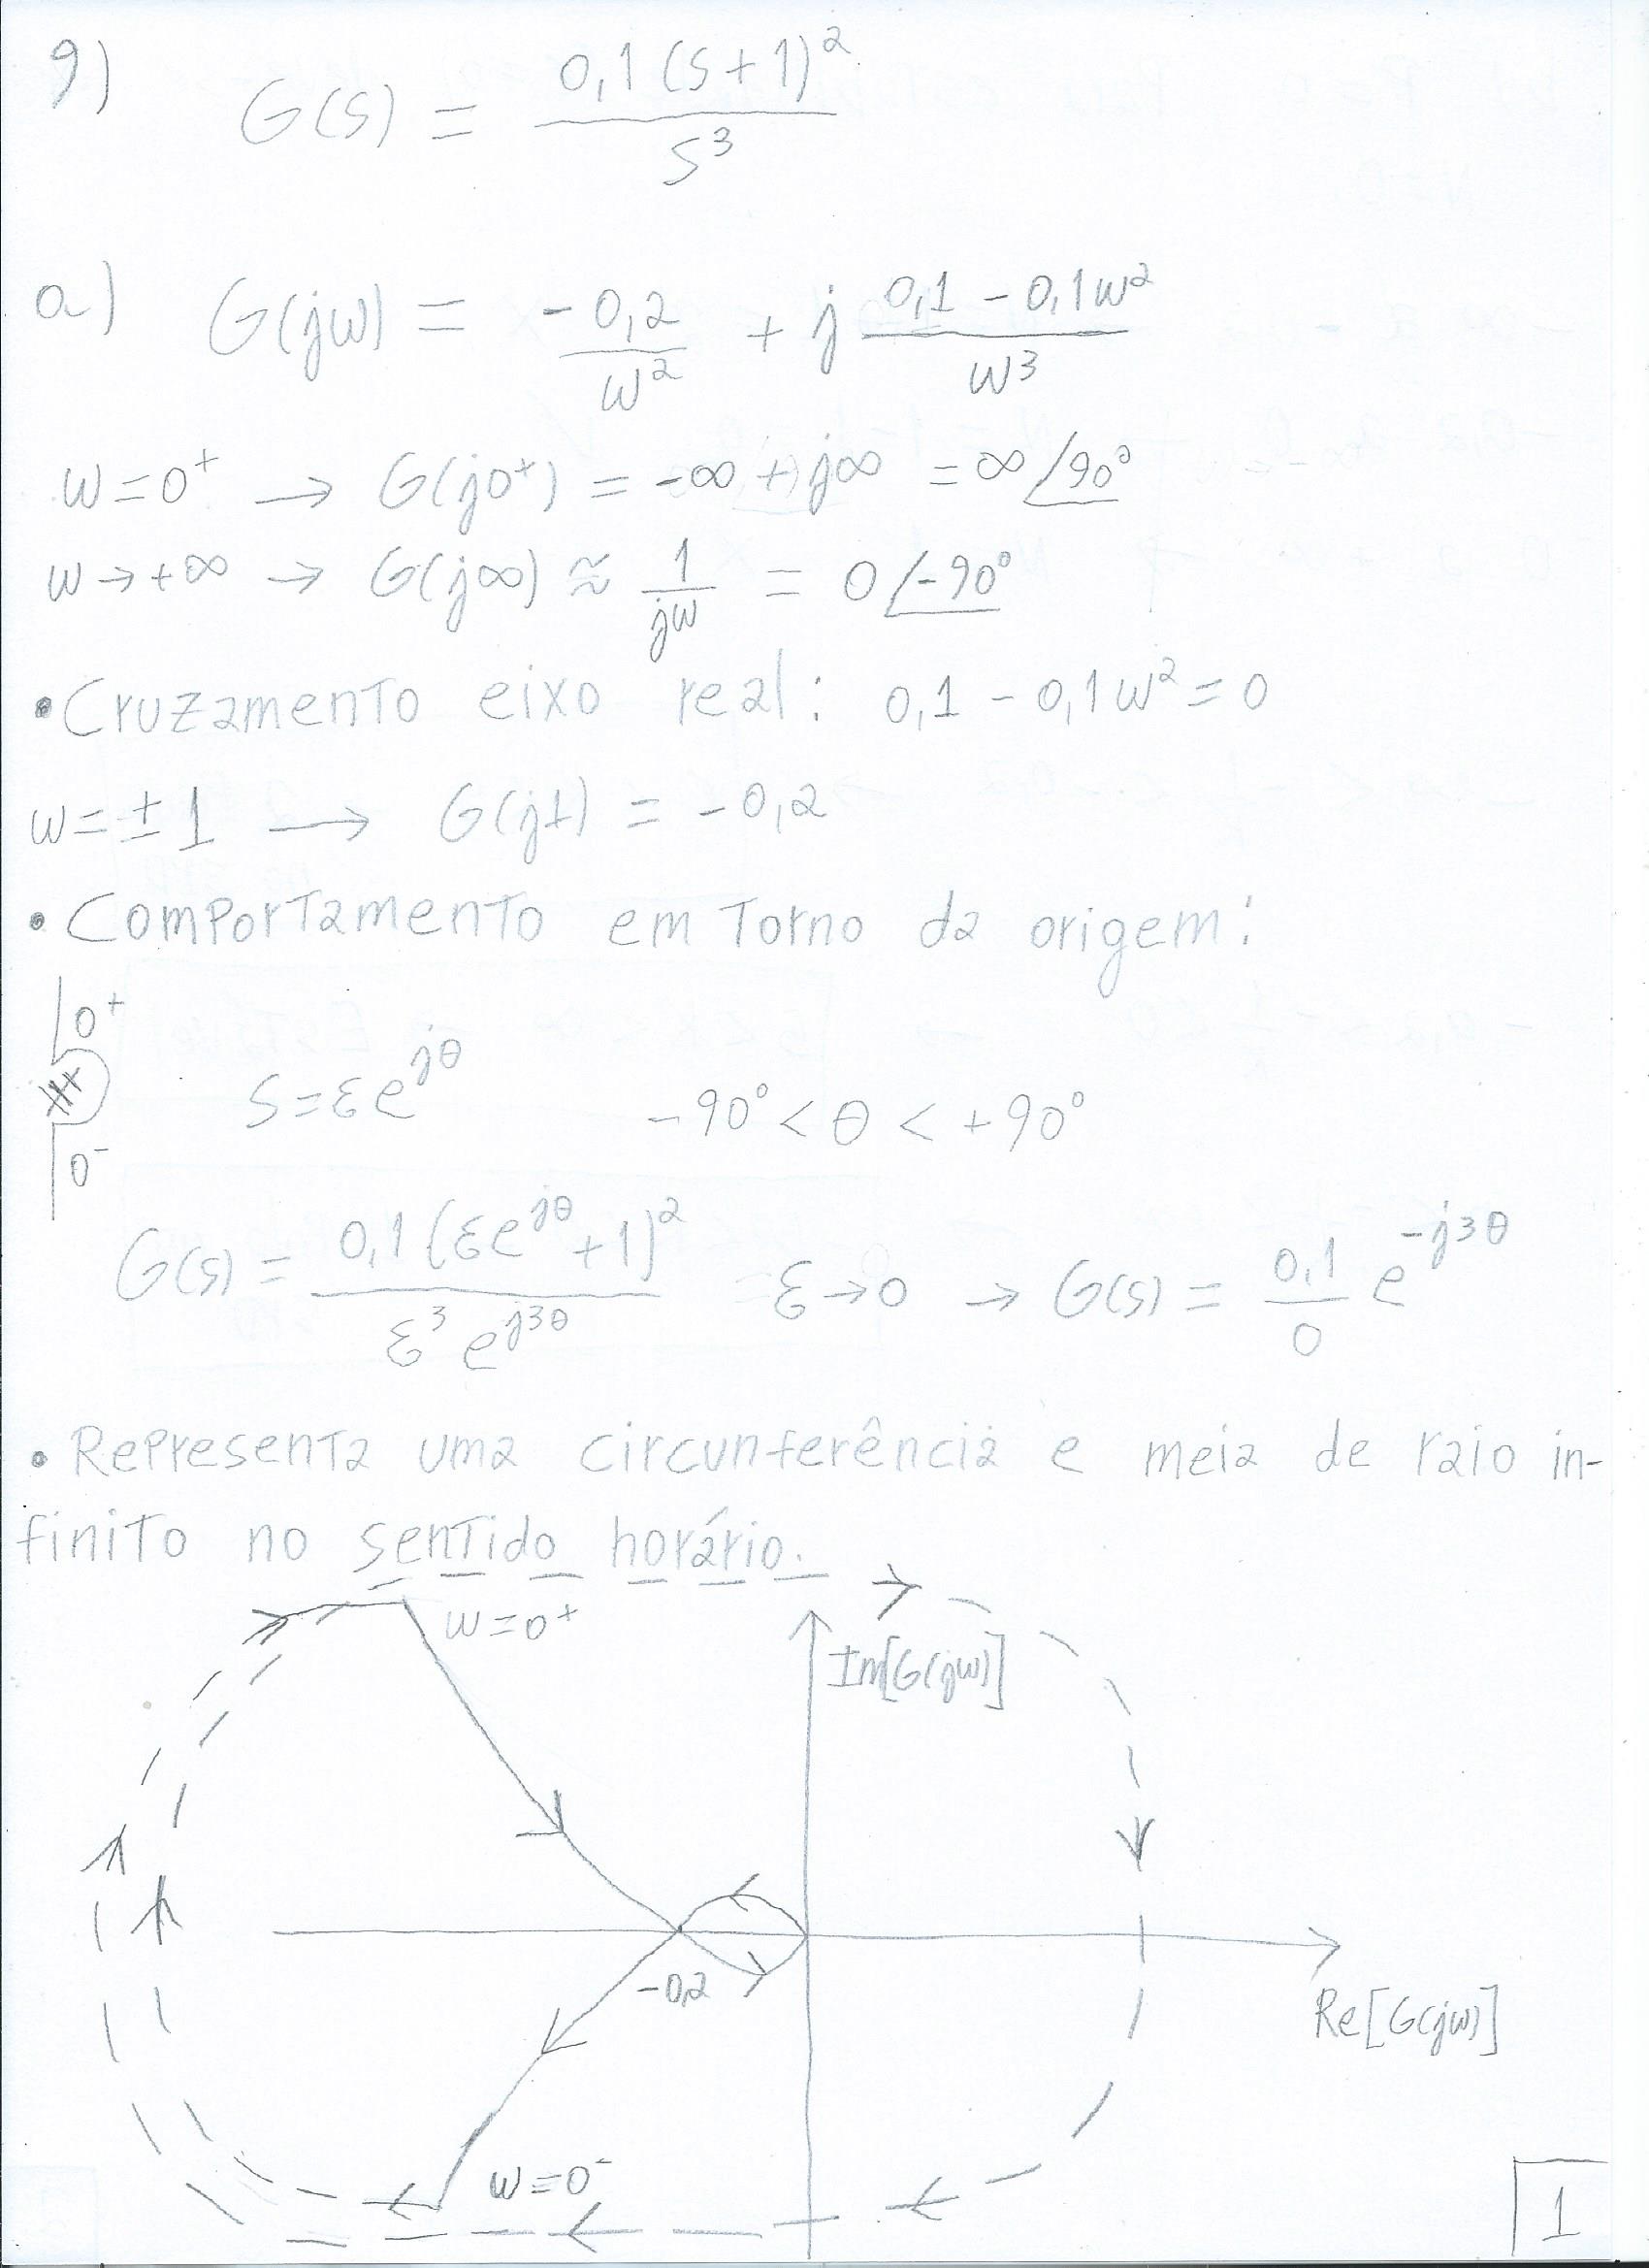 9) G(s) = 0,1(s+1)² / s³
a) G(jw) = -0,2/w² + j (0,1 - 0,1w²)/w³
w = 0⁺ → G(j0⁺) = -∞ + j∞ = ∞ /90°
w → +∞ → G(j∞) ≈ 1/jw = 0 /-90°
• Cruzamento eixo real: 0,1 - 0,1w² = 0
w = ± 1 → G(j1) = -0,2
• Comportamento em Torno da origem:
0⁺
s = εe^jθ -90° < θ < +90°
0⁻
G(s) = 0,1(εe^jθ + 1)² / ε³e^j3θ ε→0 → G(s) = 0,1/0 e^-j3θ
• Representa uma circunferência e meia de raio in-
finito no sentido horário.
w = 0⁺
Im[G(jw)]
-0,2
Re[G(jw)]
w = 0⁻
1